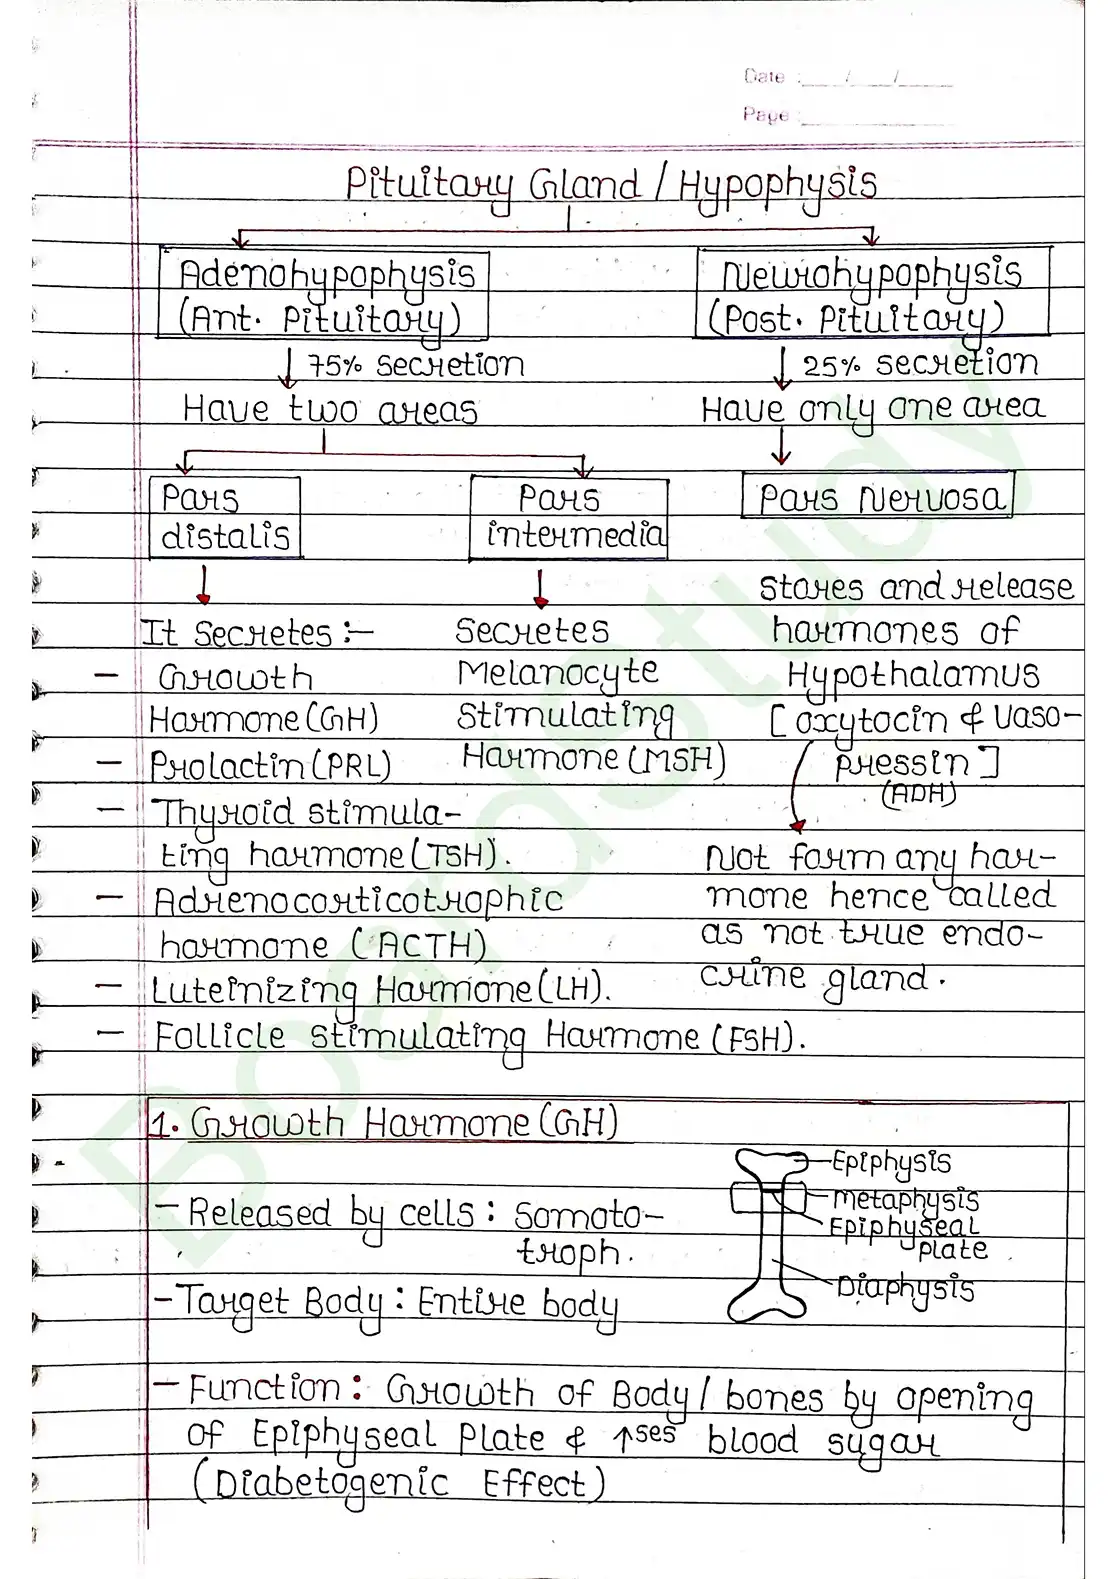 Date : ___/___/____
Page : ____________
Pituitary Gland / Hypophysis
Adenohypophysis
(Ant. Pituitary)
75% secretion
Have two areas
Neurohypophysis
(Post. Pituitary)
25% secretion
Have only one area
Pars
distalis
Pars
intermedia
Pars Nervosa
It Secretes :-
- Growth
Hormone (GH)
- Prolactin (PRL)
- Thyroid stimula-
ting hormone (TSH).
- Adrenocorticotrophic
hormone (ACTH)
- Luteinizing Hormone (LH).
- Follicle stimulating Hormone (FSH).
Secretes
Melanocyte
Stimulating
Hormone (MSH)
Stores and release
hormones of
Hypothalamus
[oxytocin & Vaso-
pressin]
(ADH)
Not form any hor-
mone hence called
as not true endo-
crine gland.
1. Growth Hormone (GH)
- Released by cells : Somoto-
troph.
- Target Body : Entire body
Epiphysis
Metaphysis
Epiphyseal
plate
Diaphysis
- Function : Growth of Body / bones by opening
of Epiphyseal Plate & ↑ses blood sugar
(Diabetogenic Effect)
BoardStudy